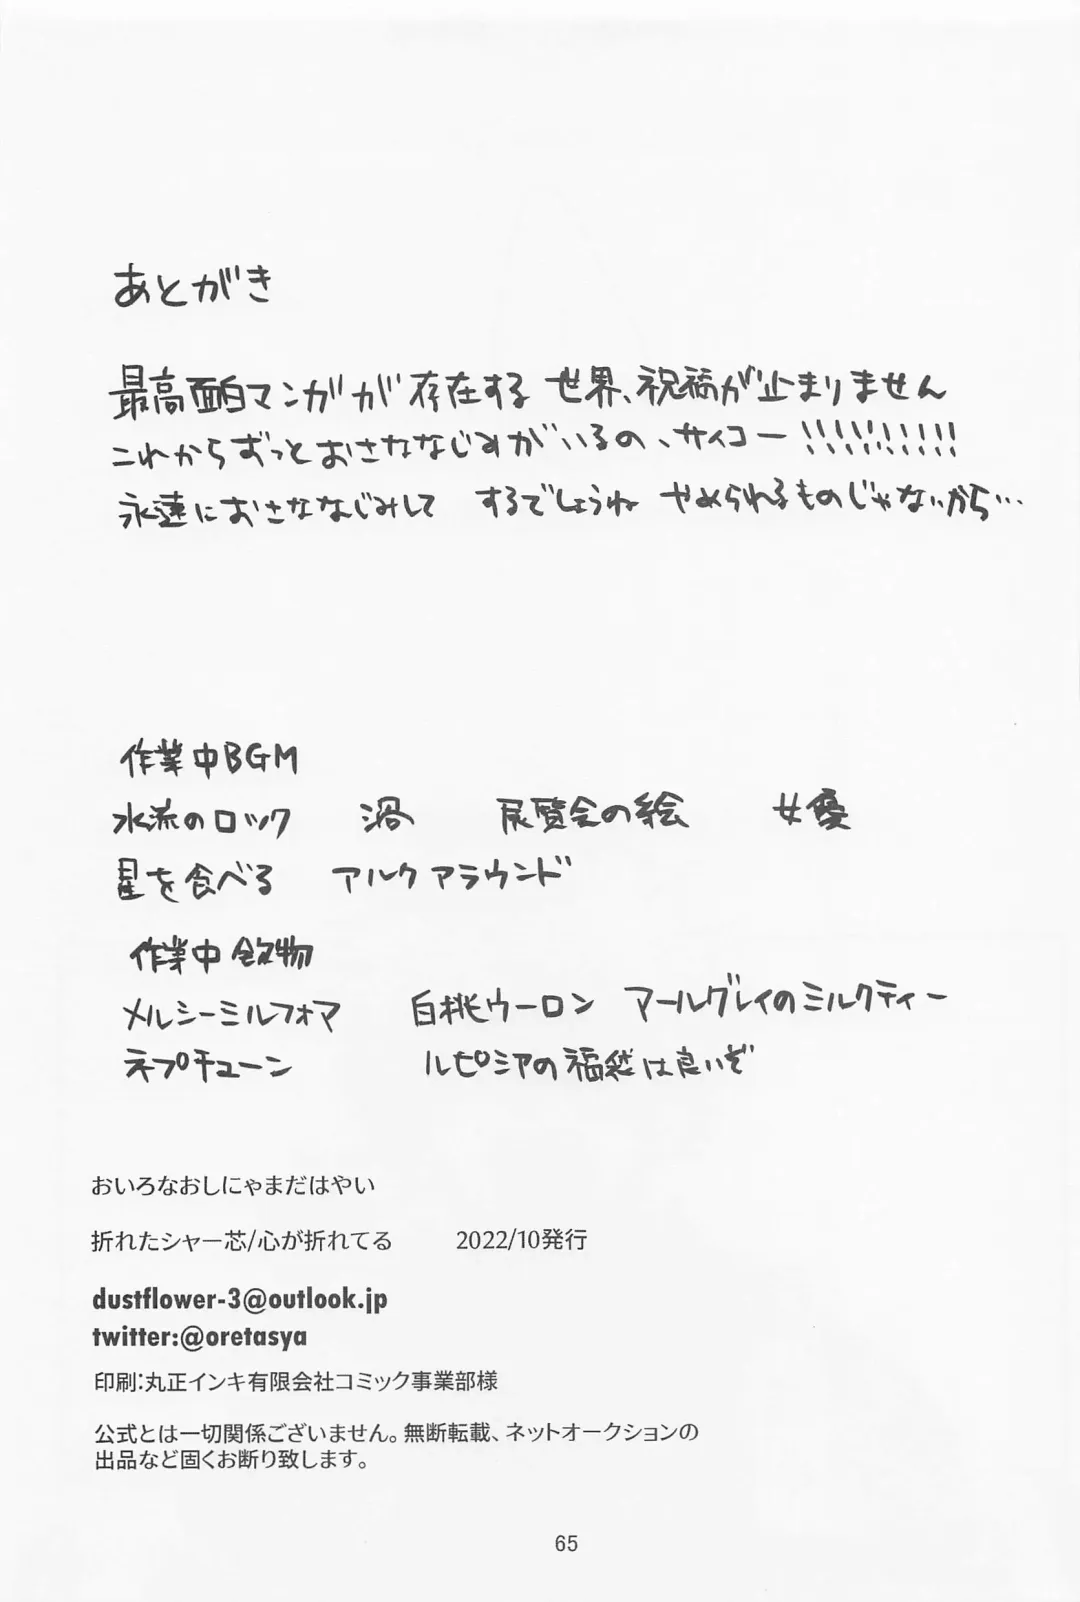 あとがき
最高面白マンガが存在する 世界、祝福が止まりません
これからずっとおさななじみがいるの、サイコー!!!!!!!!!!
永遠におさななじみして するでしょうね やめられるものじゃないから…
作業中BGM
水流のロック 渦 展覧会の絵 女優
星を食べる アルクアラウンド
作業中飲物
メルシーミルフォマ 白桃ウーロン アールグレイのミルクティー
ネプチューン ルピシアの福袋は良いぞ
おいろなおしにゃまだはやい
折れたシャー芯/心が折れてる 2022/10発行
dustflower-3@outlook.jp
twitter:@oretasya
印刷:丸正インキ有限会社コミック事業部様
公式とは一切関係ございません。無断転載、ネットオークションの
出品など固くお断り致します。
65